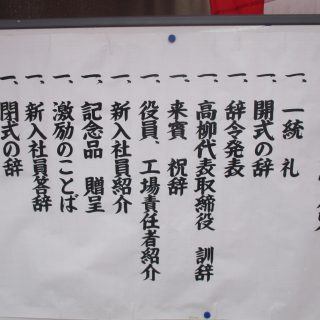 一、一統 礼
一、開式の辞
一、辞令発表
一、高柳代表取締役 訓辞
一、来賓 祝辞
一、役員、工場責任者紹介
一、新入社員紹介
一、記念品 贈呈
一、激励のことば
一、新入社員答辞
一、閉式の辞